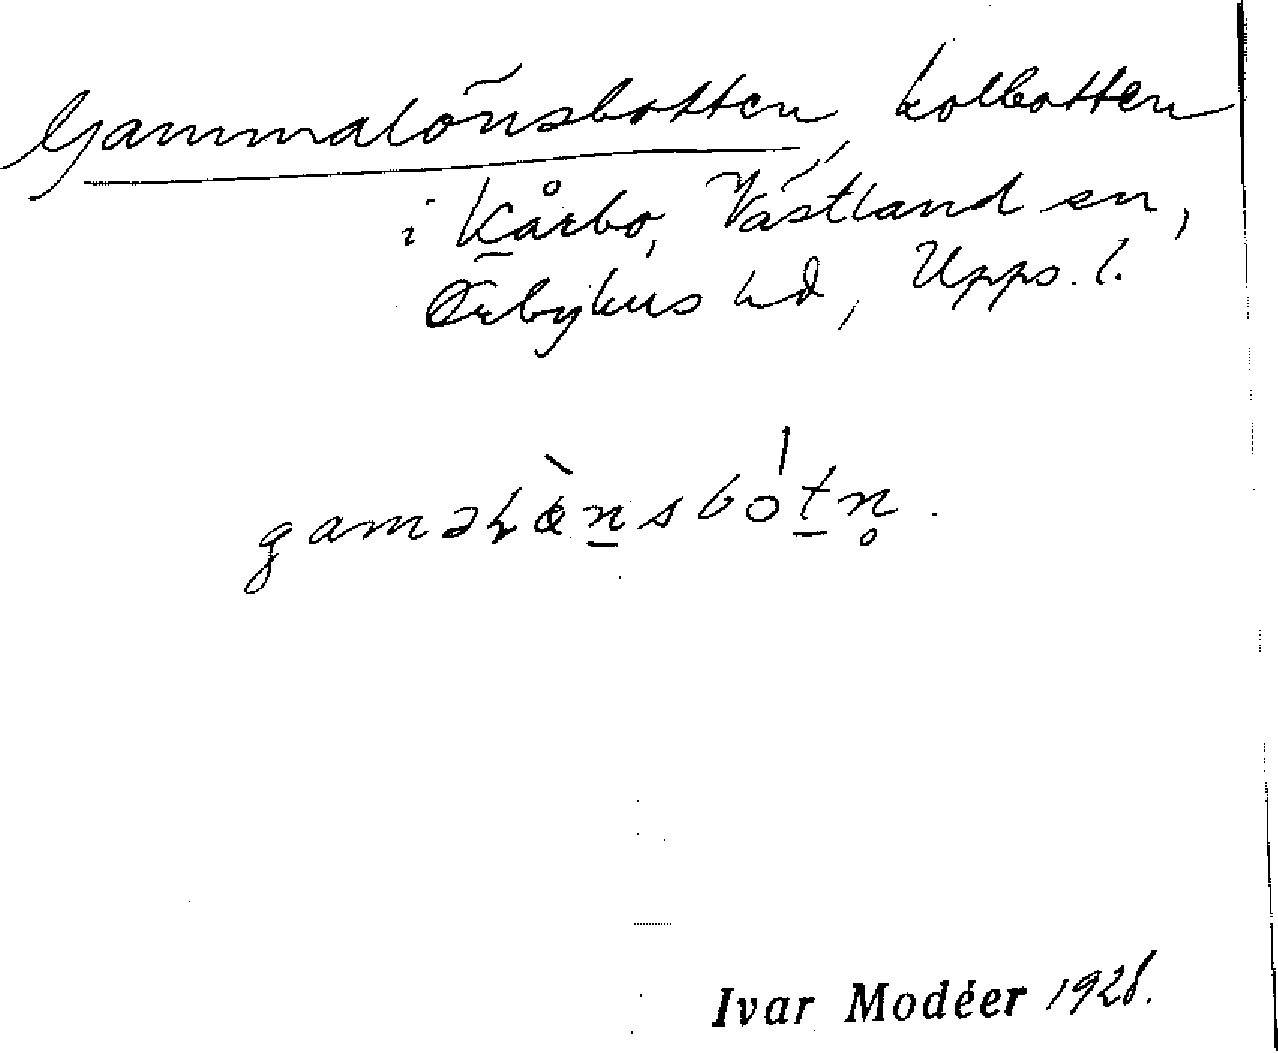 Gammalönsbotten, kolbotten
i Kårbo, Västland sn,
Örbyhus hd, Upps. l.
Ivar Modéer 1928.